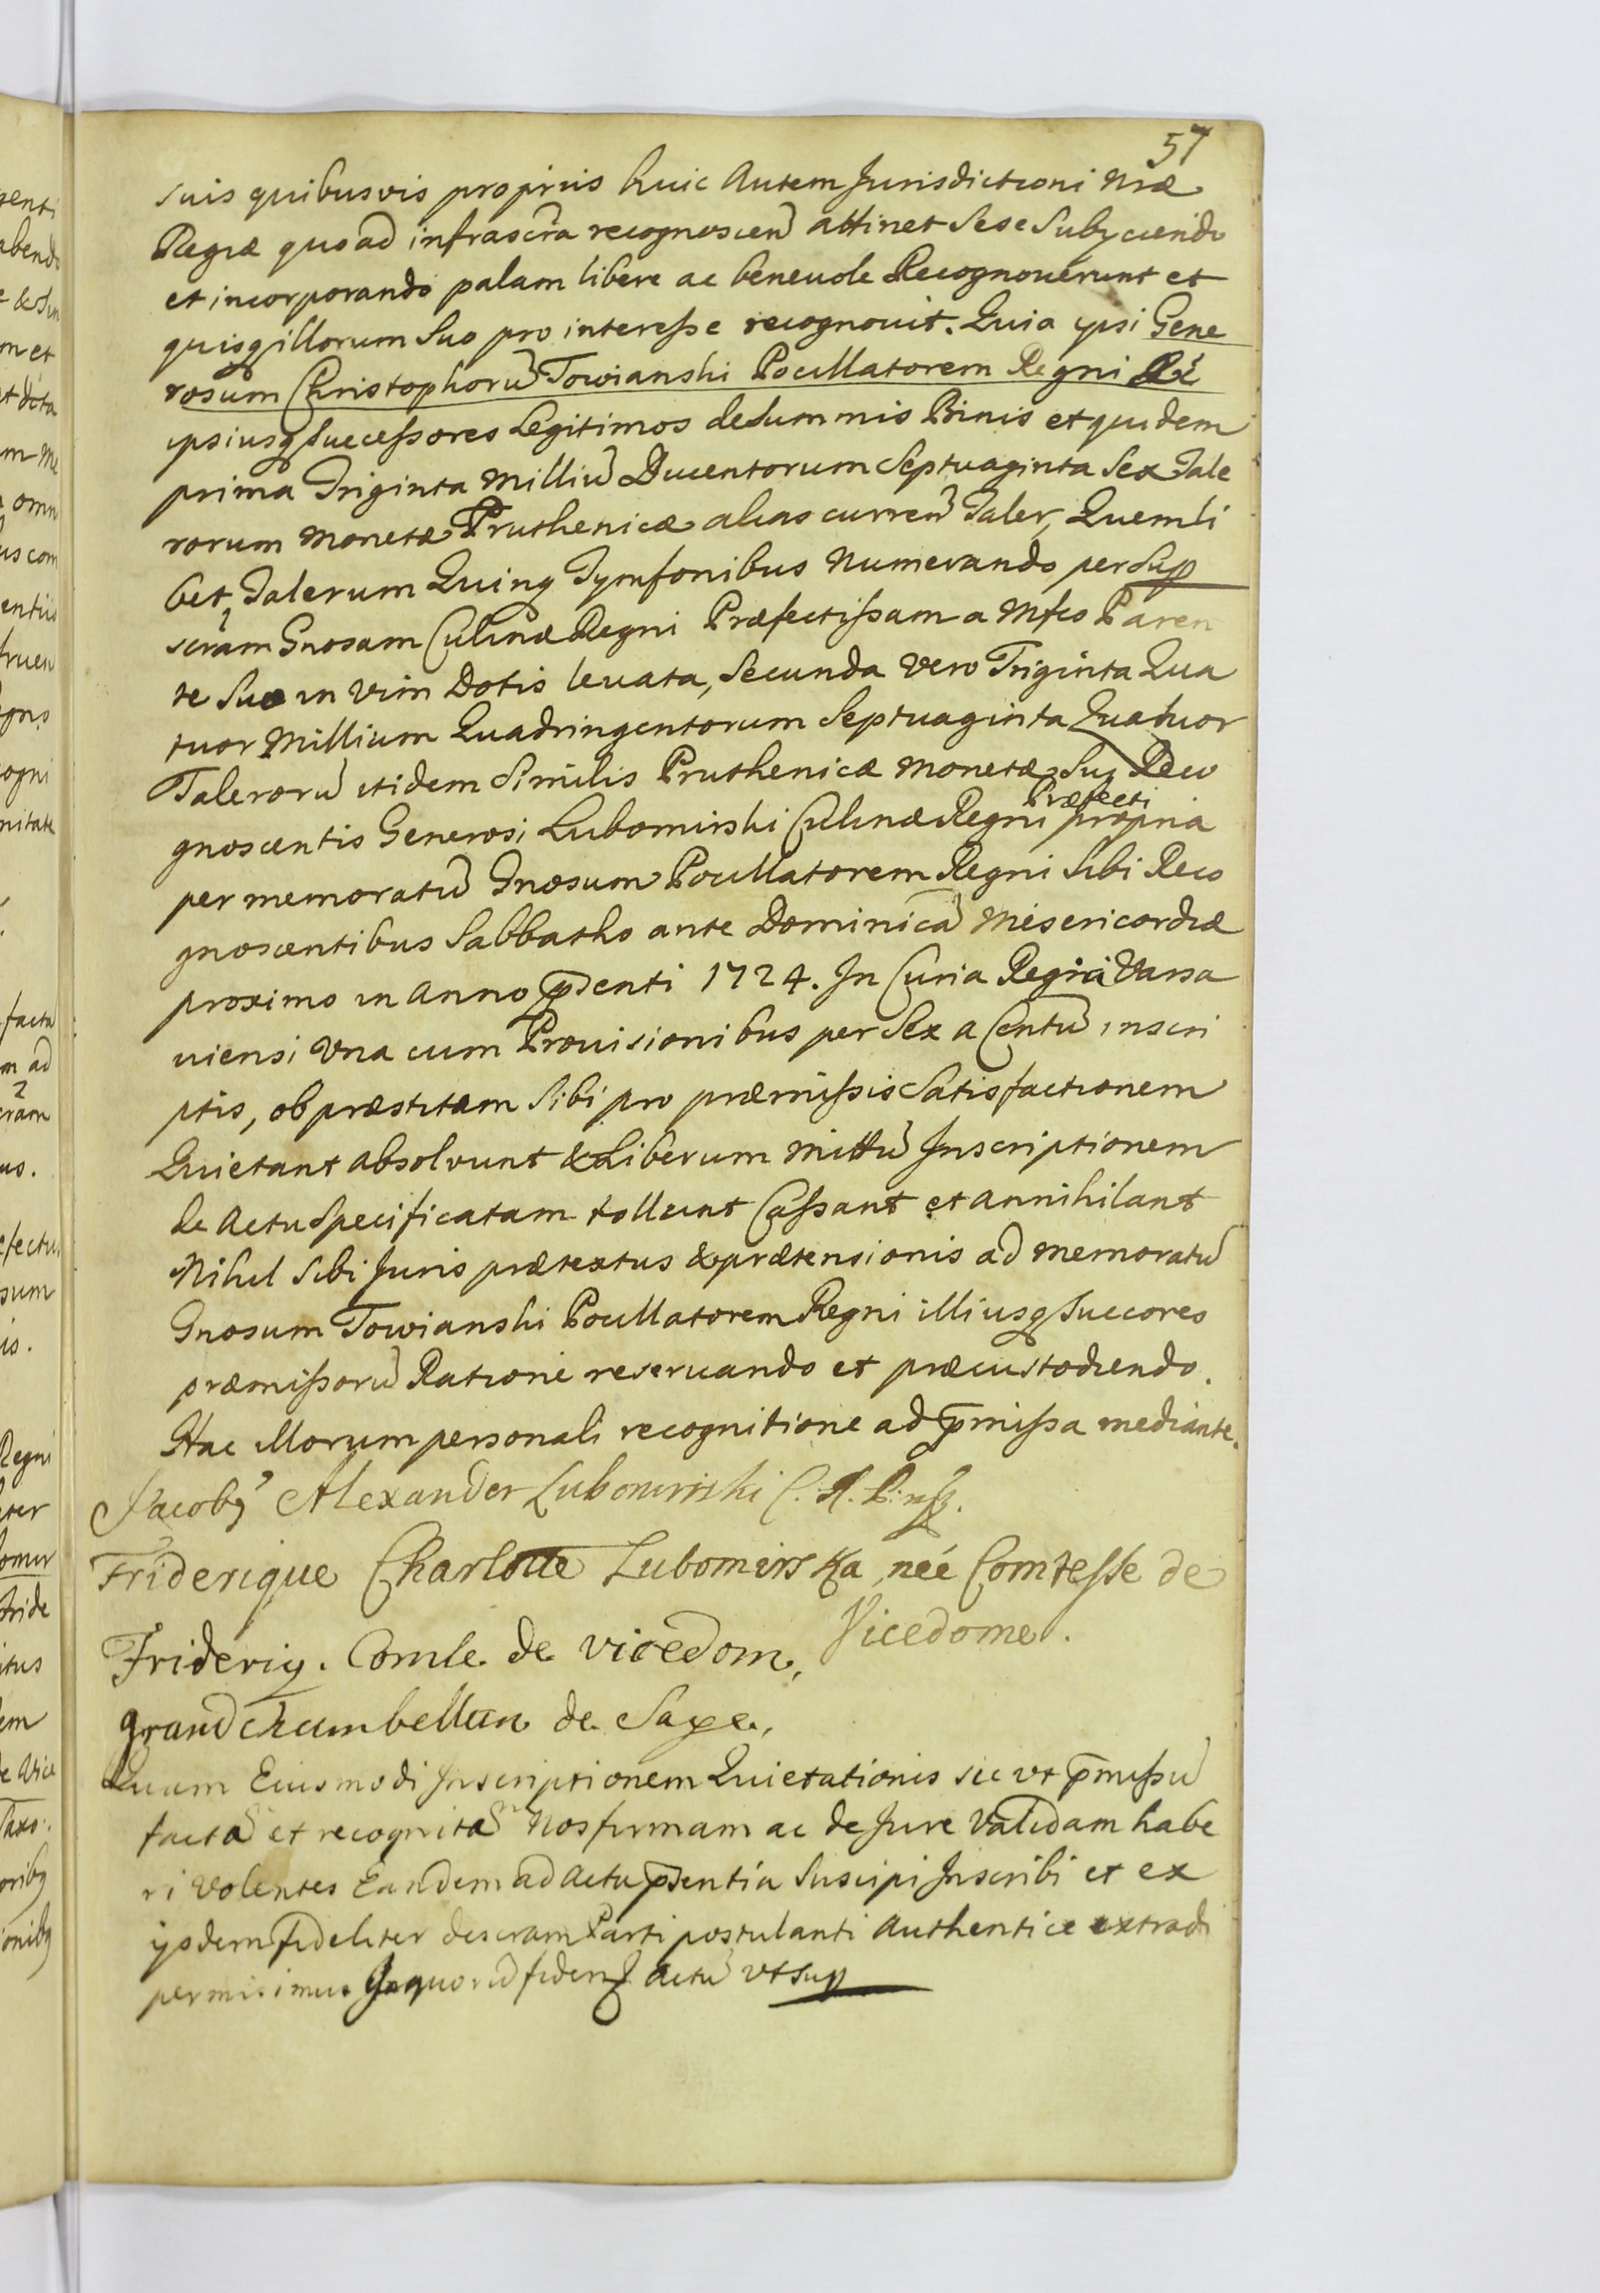 57
suis quibusvis proprius huic Autem Jurisdictioni Nræ
Regiæ quoad infrascra recognoscen attinet Sese Subyciendo
et incorporando palam libere ac beneuole Recognouerunt et
quisq illorum Suo pro interesse recognouit. Quia ipsi Gene
rosum Christophorū Towianski Pocillatorem Regni
ipsiusq successores Legitimos desummis Binis et quidem
prima Triginta Milliū Ducentorum Septuaginta Sex Tale
rorum Monetæ Pruthenicæ alias curren Taler, Quemli
bet Talerum Quinq Tymfonibus Numerando per Sup
scram Gnosam Culinæ Regni Præfectissam a Mfco Paren
te Suo in Vim Dotis leuata, Secunda Vero Triginta Qua
tuor Millium Quadringentorum Septuaginta Quatuor
Talerorū itidem Similis Pruthenicæ Monetæ Suq Reco
Præfecti
gnoscentis Generosi Lubomirski Culinæ Regni propria
per memoratū Gnosum Pocillatorem Regni Sibi Reco
gnoscentibus Sabbatho ante Dominicā Misericordiæ
proximo in Anno p̄senti 1724. In Curia Regia Varsa
uiensi Vna cum Prouisionibus per Sex a Centū inscri
ptis, ob præstitam Sibi pro præmissis Satisfactionem
Quietant absolvunt & Liberum mittū Inscriptionem
de Actu Specificatam tollunt Cassant et annihilant
Nihil Sibi Juris prætextus & prætensionis ad memoratū
Gnosum Towianski Pocillatorem Regni illiusq Succores
præmissorū Ratione reseruando et præcustodiendo.
Hac illorum personali recognitione ad p̄missa mediante.
Jacobq Alexander Lubomirski C. R. P. mp.
Friderique Charlotte Lubomirska née Comtesse de
Vicedome.
Friderig. Comte de vicedom,
grand chambellan de Saxe.
Quam Eiusmodi Inscriptionem Quietationis sic vt p̄missū
factā et recognitā Nos firmam ac de Jure Validam habe
ri Volentes Eandem ad Acta p̄sentia Suscipi Inscribi et ex
ijsdem fideliter descram Parti postulanti Authentice extradi
permisimus In quorū fidem Actū vt Sup